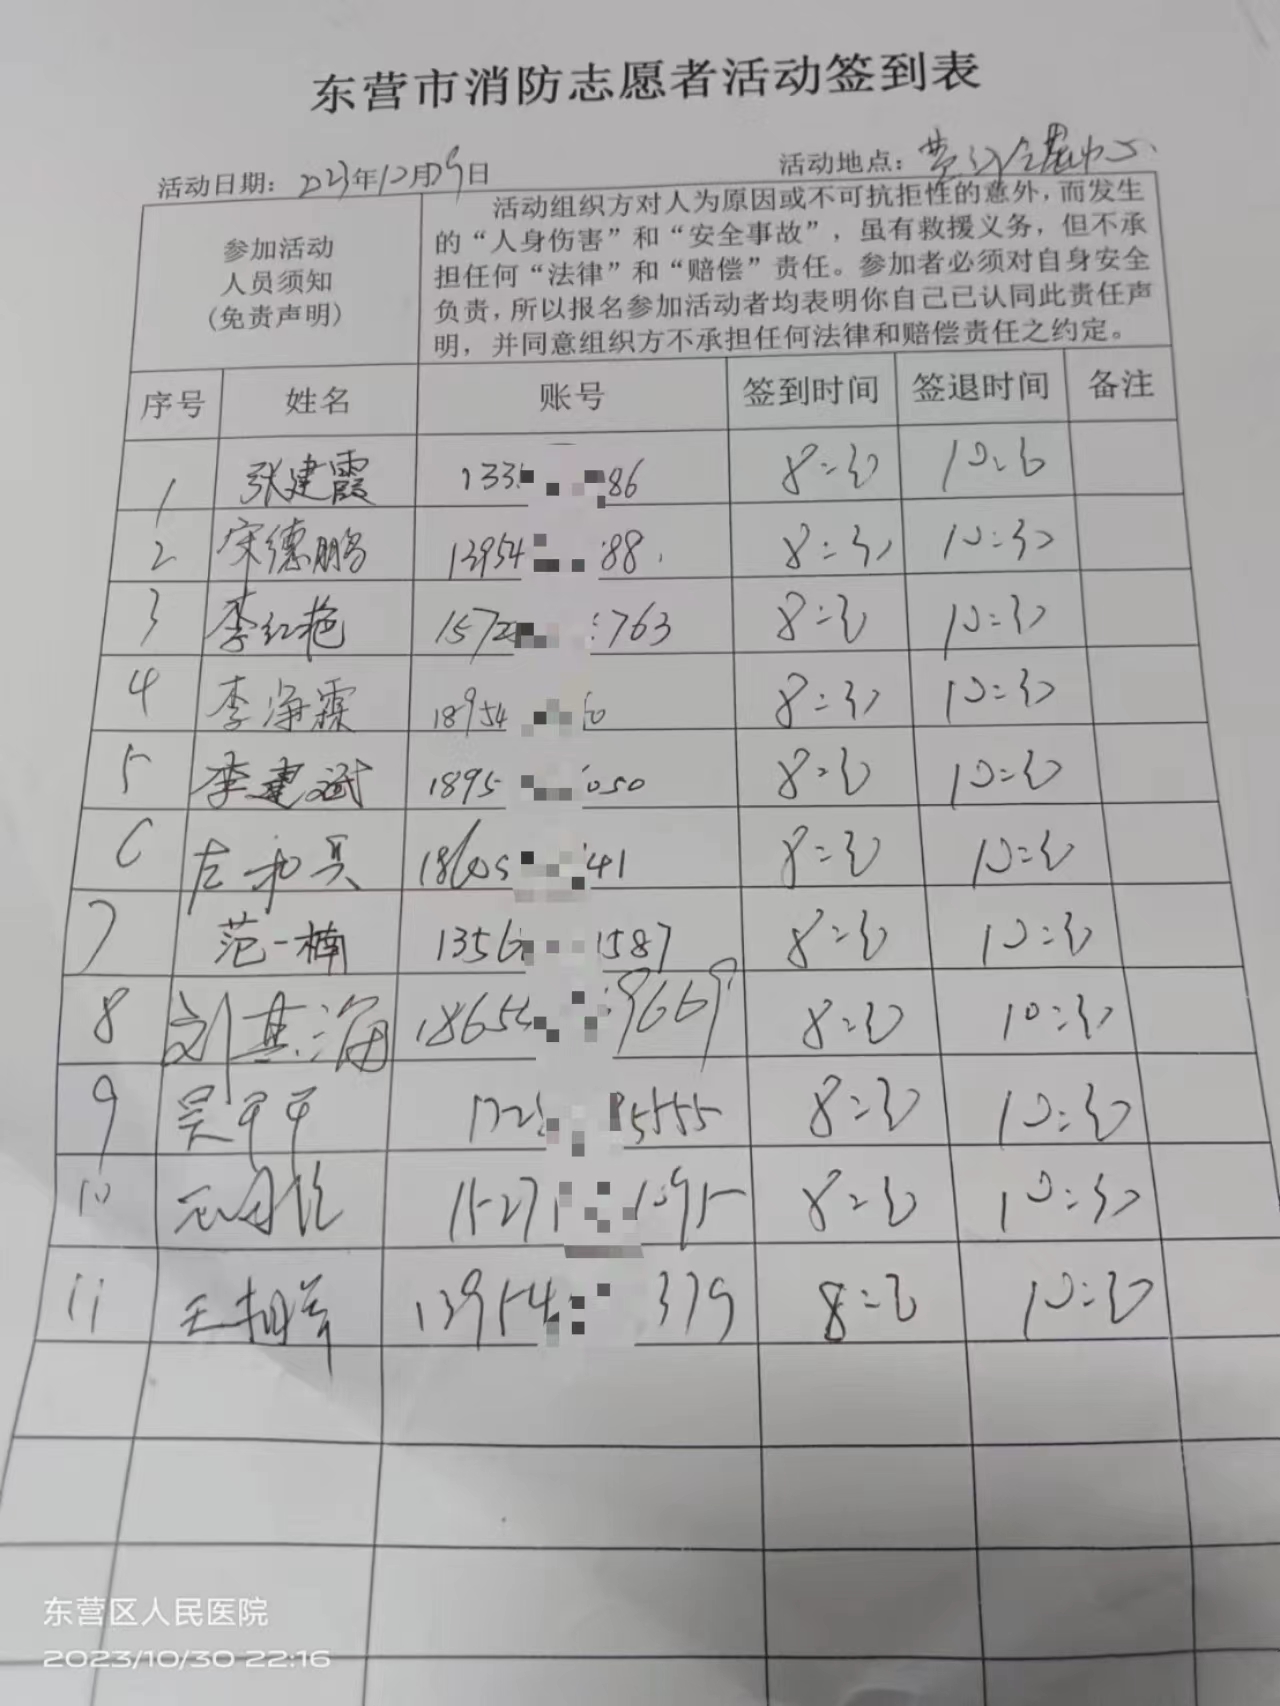 东营市消防志愿者活动签到表
活动日期：2023年10月29日 活动地点：黄河会展中心
参加活动
人员须知
(免责声明)
活动组织方对人为原因或不可抗拒性的意外，而发生
的“人身伤害”和“安全事故”，虽有救援义务，但不承
担任何“法律”和“赔偿”责任。参加者必须对自身安全
负责，所以报名参加活动者均表明你自己已认同此责任声
明，并同意组织方不承担任何法律和赔偿责任之约定。
序号 姓名 账号 签到时间 签退时间 备注
1 张建霞 133 86 8:30 10:30
2 宋德鹏 13954 88 8:30 10:30
3 李红艳 1572 763 8:30 10:30
4 李海霖 18954 60 8:30 10:30
5 李建斌 1895 050 8:30 10:30
6 左 18605 41 8:30 10:30
7 范一楠 1356 1587 8:30 10:30
8 刘其海 1865 9669 8:30 10:30
9 吴平平 172 5555 8:30 10:30
10 15271 1095 8:30 10:30
11 王 13954 379 8:30 10:30
东营区人民医院
2023/10/30 22:16